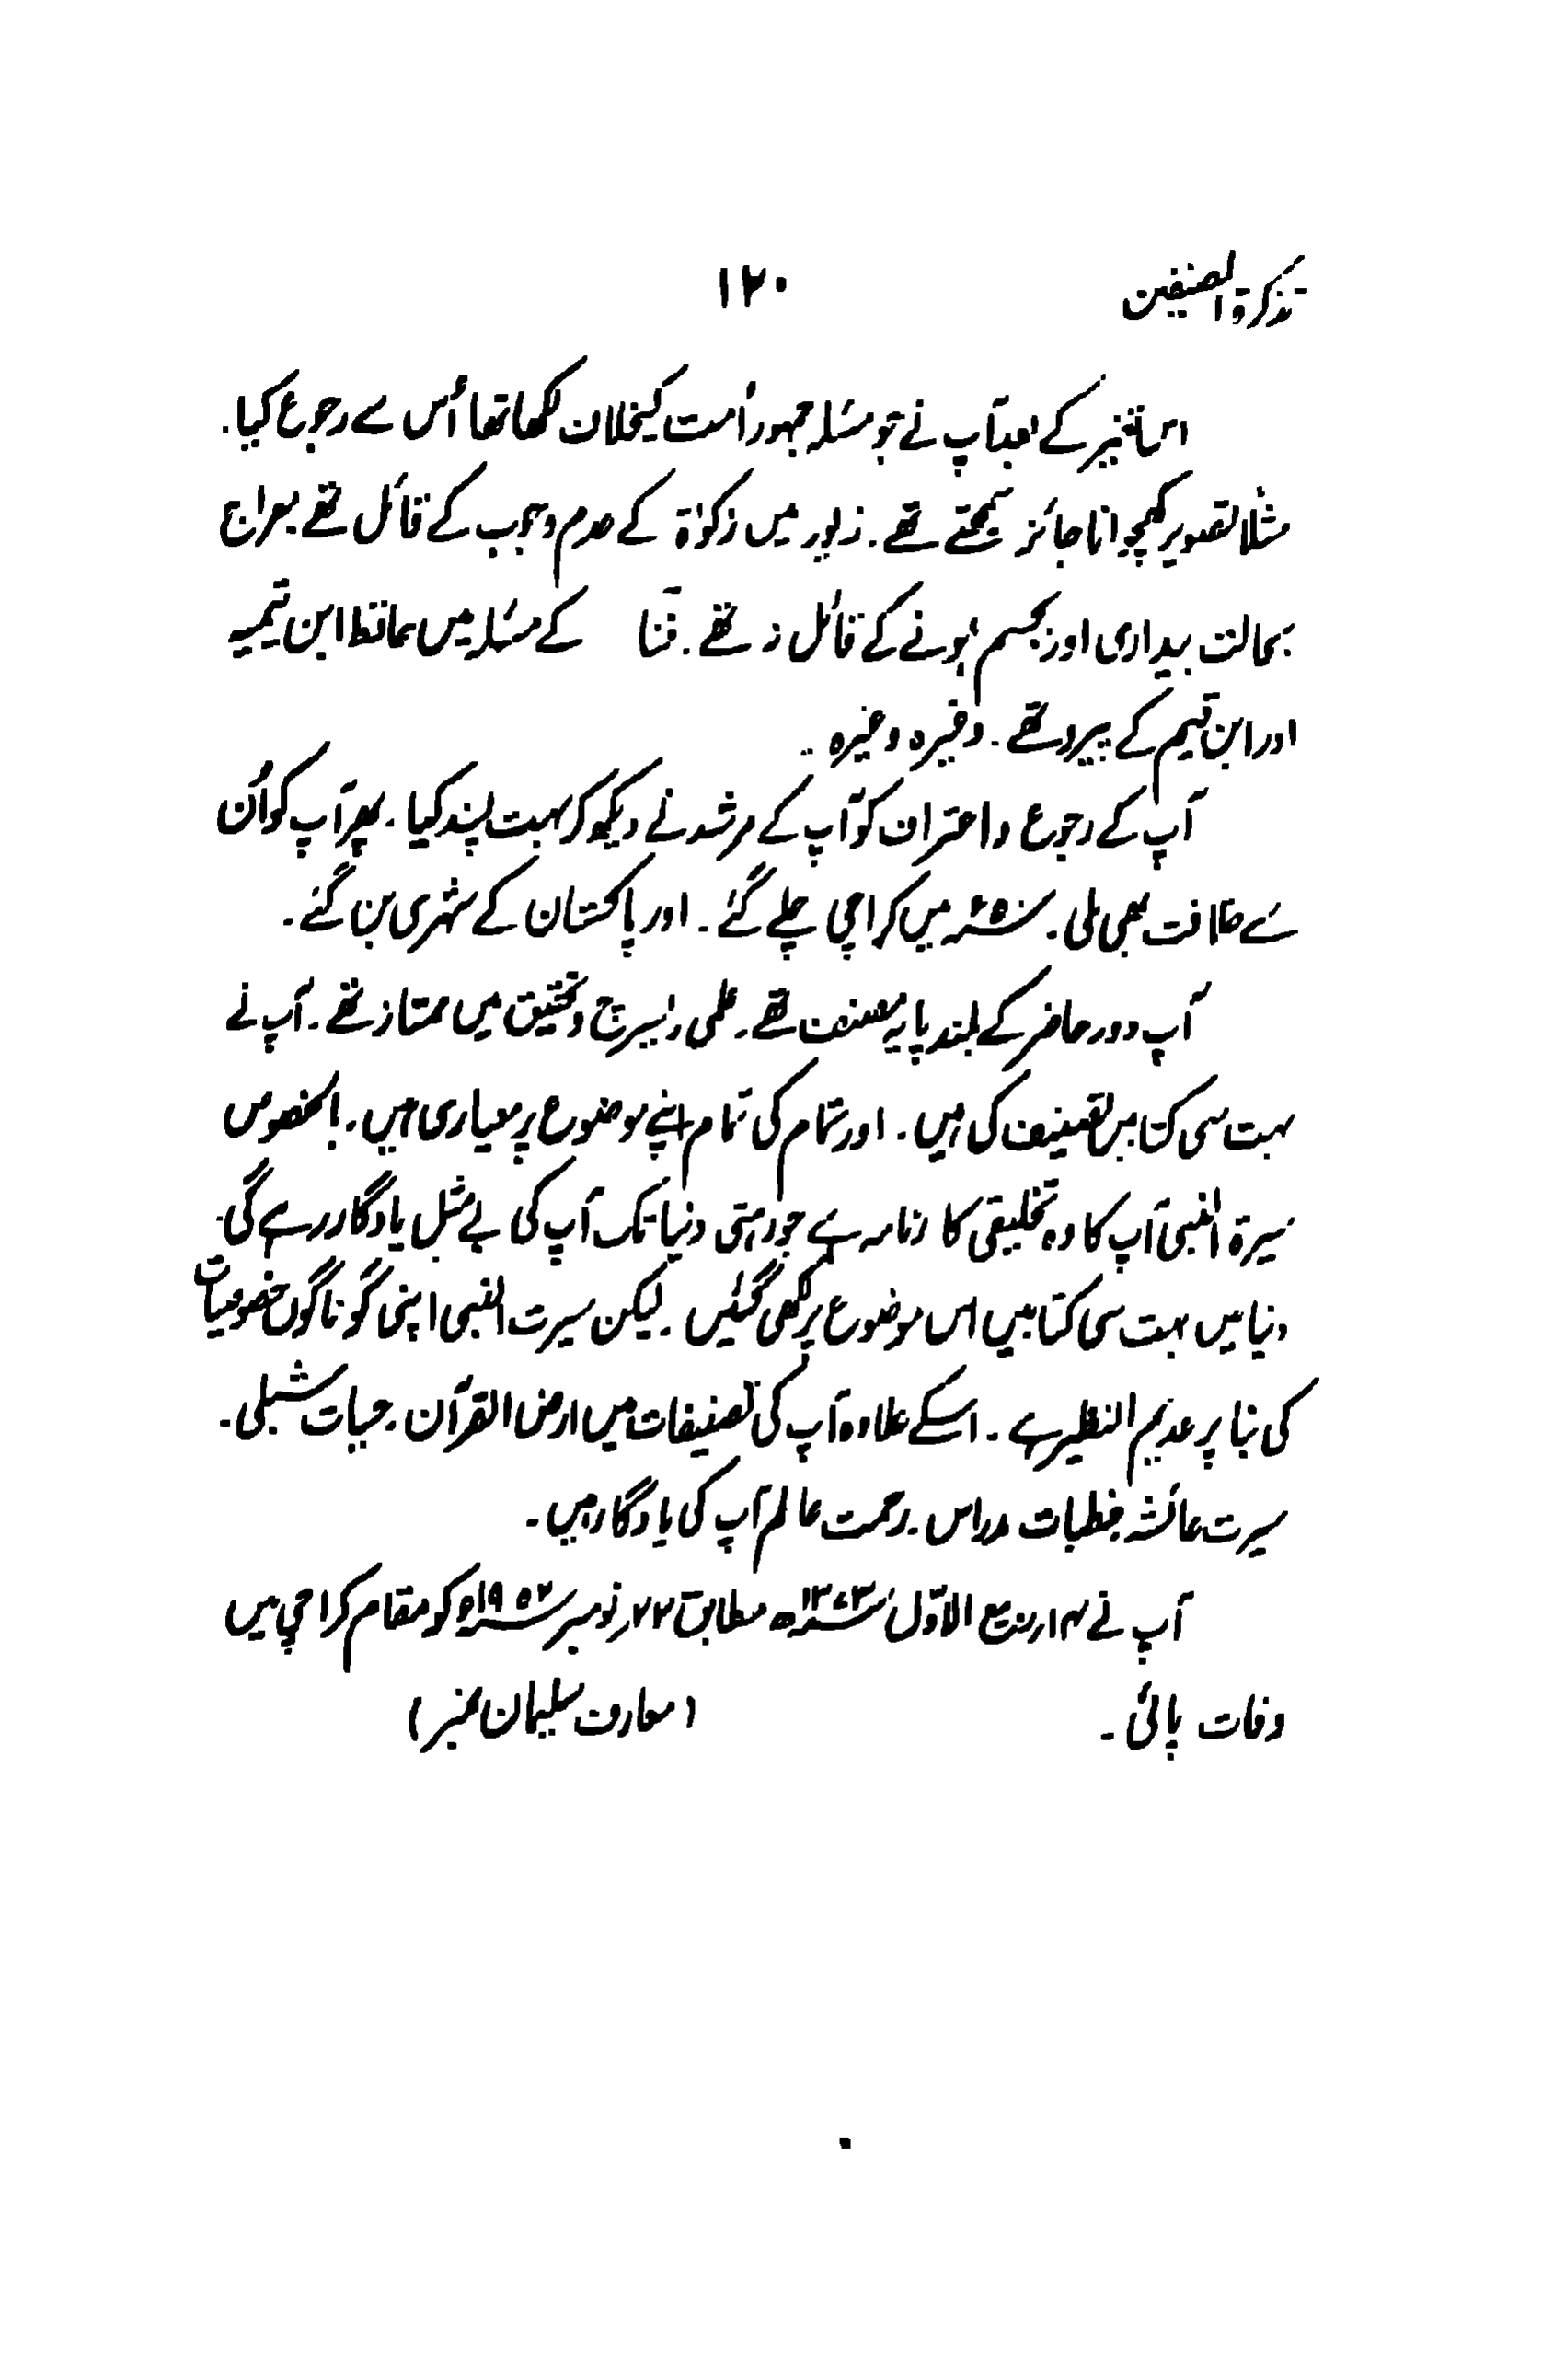 تذکرۃ المصنفین ۱۲۰
اس تغیر کے بعد آپ نے جو مسئلہ جمہور اُمت کیخلاف لکھا تھا اُس سے رجوع کیا۔
مثلاً تصویر کھچوانا جائز سمجھتے تھے۔ زیور میں زکوٰۃ کے عدم وجوب کے قائل تھے معراج
بحالت بیداری اور بجسم ہونے کے قائل نہ تھے۔ فنا کے مسئلہ میں حافظ ابن تیمیہ
اور ابن قیم کے پیرو تھے۔ وغیرہ وغیرہ ۔
آپ کے رجوع و اعتراف کو آپ کے مرشد نے دیکھ کر بہت پسند کیا۔ پھر آپ کو اُن
سے خلافت بھی ملی۔ ۵۰ء میں کراچی چلے گئے۔ اور پاکستان کے شہری بن گئے۔
آپ دور حاضر کے بلند پایہ مصنف تھے۔ علمی ریسرچ و تحقیق میں ممتاز تھے۔ آپ نے
بہت سی کتابیں تصنیف کی ہیں۔ اور تمام کی تمام اپنے موضوع پر معیاری ہیں۔ بالخصوص
سیرۃ النبی آپ کا وہ تخلیقی کارنامہ ہے جو رہتی دنیا تک آپ کی بے مثل یادگار رہے گی۔
دنیا میں بہت سی کتابیں اس موضوع پر لکھی گئیں۔ لیکن سیرت النبی اپنی گوناگوں خصوصیات
کی بنا پر عدیم النظیر ہے۔ اسکے علاوہ آپ کی تصنیفات میں ارض القرآن۔ حیات شبلی۔
سیرت عائشہ۔ خطبات مدراس۔ رحمت عالم آپ کی یادگار ہیں۔
آپ نے ۱۴ ربیع الاوّل ۱۳۷۳ھ مطابق ۲۲ نومبر ۱۹۵۳ء کو مقام کراچی میں
وفات پائی۔ (معارف سلیمان نمبر)